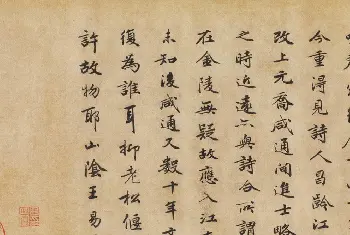 今重得見詩人昌齡江
改上元喬咸通間進士略
之時近遠亦與詩合所謂
在金陵無疑故應入江
未知後咸通又數十年
復為誰耳抑老松偃
許故物耶山陰王易